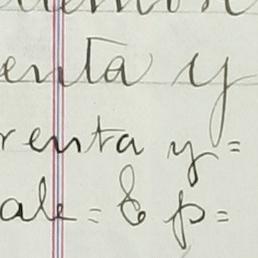 enta y
renta y=
ale= & p=